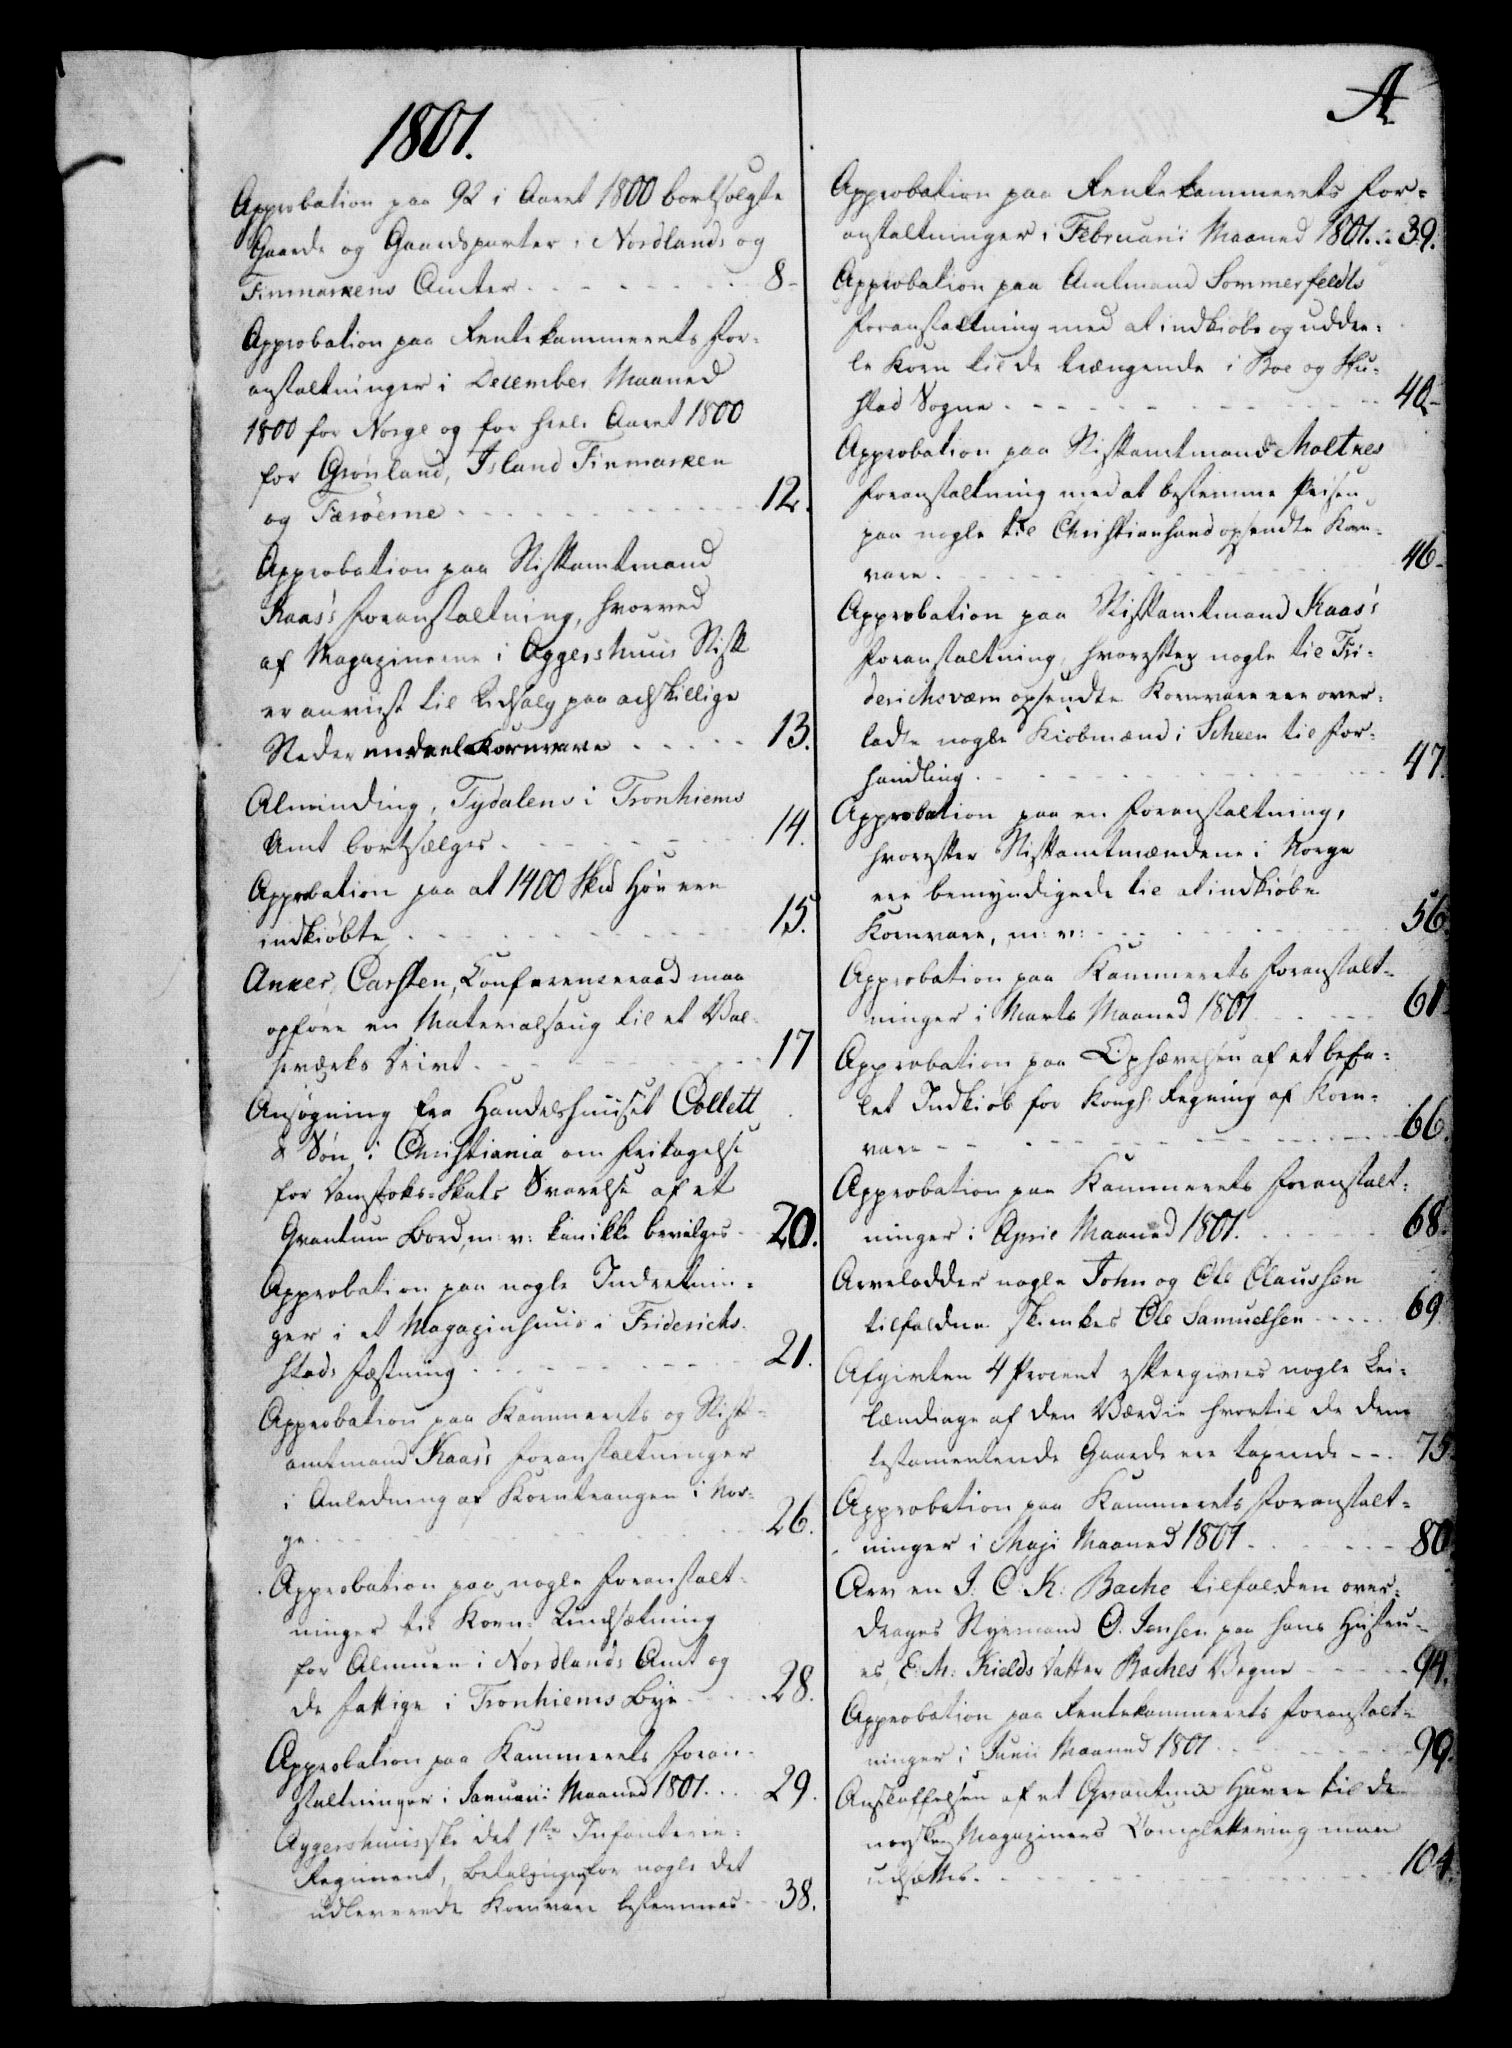 1801.
Approbation paa 92 i Aaret 1800 bortsolgte
Gaarde og Gaardsparter i Nordlands og
Finmarkens Amter - - - - 8 -
Approbation paa Rentekammerets For-
anstaltninger i December Maaned
1800 for Norge og for hele Aaret 1800
for Grønland, Island Finmarken
og Færøerne - - - - 12.
Approbation paa Stiftamtmand
Kaas's Foranstaltning, hvorved
af Magazinerne i Aggershuus Stift
er anviist til Udsalg paa adskillige
Steder endeel Kornvare - - - - 13.
Alminding, Tydalens i Tronhiems
Amt bortsælges - - - - 14.
Approbation paa at 1400 Skd Høe ere
indkiøbte - - - - 15.
Anker, Carsten, Conferenceraad maa
opføre en Materialsaug til et Val-
seværks Drivt - - - - 17
Ansøgning fra Handelshuuset Collett
& Søn i Christiania om Fritagelse
for Tømstoks-Skats Svarelse af et
Qvantum Bord, m: v: kan ikke bevilges - 20.
Approbation paa nogle Indretnin-
ger i et Magazinhuus i Friderichs-
stads Fæstning - - - - 21.
Approbation paa Kammerets og Stift-
amtmand Kaas's Foranstaltninger
i Anledning af Korntrangen i Nor-
ge - - - - 26.
Approbation paa nogle Foranstalt-
ninger til Korn-Undsætning
for Almuen i Nordlands Amt og
de fattige i Tronhiems Bye - - - 28.
Approbation paa Kammerets Foran-
staltninger i Januarii Maaned 1801. - - 29.
Aggershuusske det 1ste Infanterie-
Regiment, Betalingen for nogle det
udleverede Kornvare bestemmes - - 38.
A
Approbation paa Rentekammerets For-
anstaltninger i Februarii Maaned 1801. - 39.
Approbation paa Amtmand Sommerfeldts
Foranstaltning med at indkiøbe og uddee-
le Korn til de trængende i Boe og Hu-
stad Sogne - - - - 40 -
Approbation paa Stiftamtmand Moltkes
Foranstaltning med at bestemme Prisen
paa nogle til Christianssand opsendte Korn-
vare - - - - 46 -
Approbation paa Stiftamtmand Kaas's
Foranstaltning, hvorefter nogle til Fri-
derichsværn opsendte Kornvare ere over-
ladte nogle Kiøbmænd i Scheen til For-
handling - - - - 47.
Approbation paa en Foranstaltning,
hvorefter Stiftamtmændene i Norge
ere bemyndigede til at indkiøbe
Kornvare, m: v: - - - - 56.
Approbation paa Kammerets Foranstalt-
ninger i Marts Maaned 1801 - - - 61 -
Approbation paa Ophævelsen af et befa-
let Indkiøb for Kongl: Regning af Korn-
vare - - - - 66.
Approbation paa Kammerets Foranstalt-
ninger i April Maaned 1801. - - - 68.
Arvelodder nogle John og Ole Claussen
tilfaldne skienkes Ole Samuelsen - - - 69
Afgivten 4 Procent eftergives nogle Lei-
lændinge af den Værdie hvortil de dem
testamenterede Gaarde ere taxerede - - - 75.
Approbation paa Kammerets Foranstalt-
ninger i Maji Maaned 1801 - - - 80
Arv en J. C. K: Bache tilfalden over-
drages Styrmand O. Jensen paa hans Hustru-
es, E: M: Kields Datter Baches Vegne - - - 94.
Approbation paa Rentekammerets Foranstalt-
ninger i Junii Maaned 1801 - - - 99.
Anskaffelsen af et Qvantum Havre til de
norske Magaziners Complettering maae
udsættes - - - - 104.